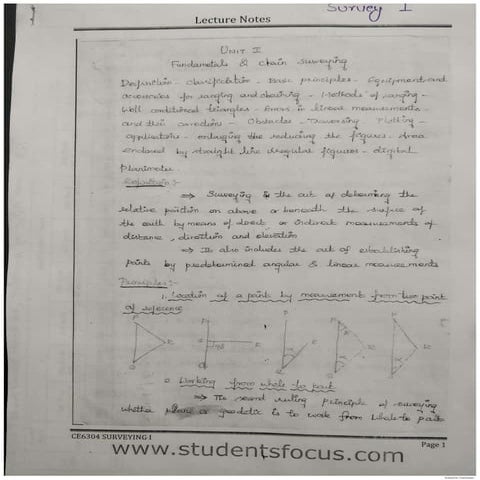 Survey I
Lecture Notes
UNIT I
Fundamentals & Chain Surveying
Definition - Classification - Basic principles - Equipment and
accessories for ranging and chaining - Methods of ranging -
Well conditioned triangles - Errors in linear measurements
and their corrections - Obstacles - Traversing - Plotting -
applications - enlarging the reducing the figures - Area
enclosed by straight line irregular figures - digital
Planimeter
Definition:-
⇒ Surveying is the art of determining the
relative position on above or beneath the surface of
the earth by means of direct or indirect measurements of
distance, direction and elevation
⇒ It also includes the art of establishing
points by predetermined angular & linear measurements
Principles:-
1. Location of a point by measurement from two points
of reference
P P P P P
R R R R R
Q Q Q Q Q
Working from whole to part
⇒ The second ruling principle of surveying
whether plane or geodetic is to work from whole to part
CE6304 SURVEYING I
Page 1
www.studentsfocus.com